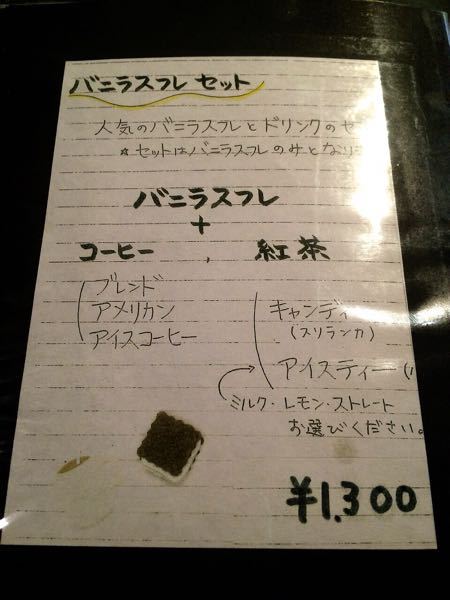 バニラスフレ セット
人気のバニラスフレとドリンクのセ
＊セットはバニラスフレのみとなり
バニラスフレ
+
コーヒー , 紅茶
ブレンド
アメリカン
アイスコーヒー
キャンディ
(スリランカ)
アイスティー
ミルク・レモン・ストレート
お選びください。
¥1,300